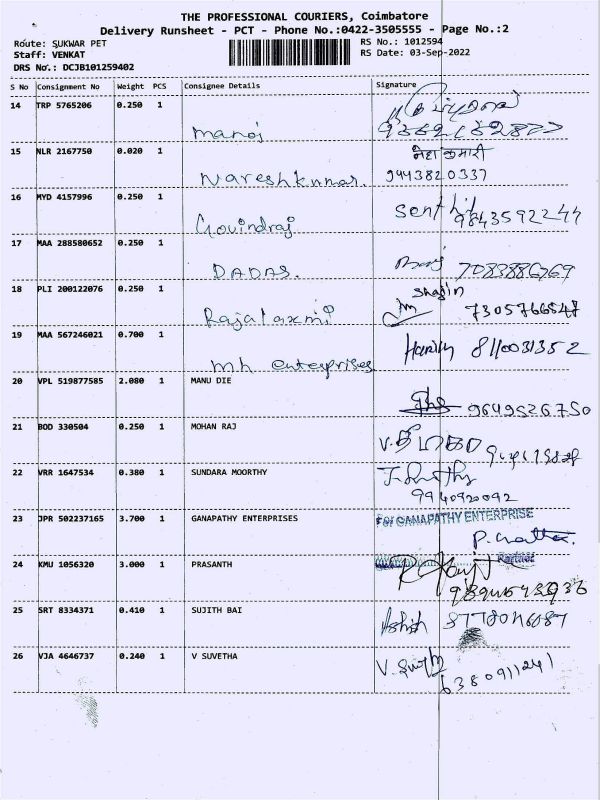 THE PROFESSIONAL COURIERS, Coimbatore
Delivery Runsheet - PCT - Phone No.:0422-3505555 - Page No.:2
Route: SUKWAR PET
RS No.: 1012594
Staff: VENKAT
RS Date: 03-Sep-2022
DRS No.: DCJB101259402
S No Consignment No Weight PCS Consignee Details Signature
14 TRP 5765206 0.250 1 manoj
15 NLR 2167750 0.020 1 Nareshkumar. नेहा कुमारी
9443820337
16 MYD 4157996 0.250 1 Govindraj Senthil
9843592244
17 MAA 288580652 0.250 1 DADAS. 7083886769
18 PLI 200122076 0.250 1 Rajalaxmi Shajin
7305766547
19 MAA 567246021 0.700 1 mh enterprises 8110031352
20 VPL 519877585 2.080 1 MANU DIE 9649526750
21 BOD 330504 0.250 1 MOHAN RAJ
22 VRR 1647534 0.380 1 SUNDARA MOORTHY
9940920092
23 JPR 502237165 3.700 1 GANAPATHY ENTERPRISES For GANAPATHY ENTERPRISE
Partner
24 KMU 1056320 3.000 1 PRASANTH
25 SRT 8334371 0.410 1 SUJITH BAI Ashish
26 VJA 4646737 0.240 1 V SUVETHA
6380911241